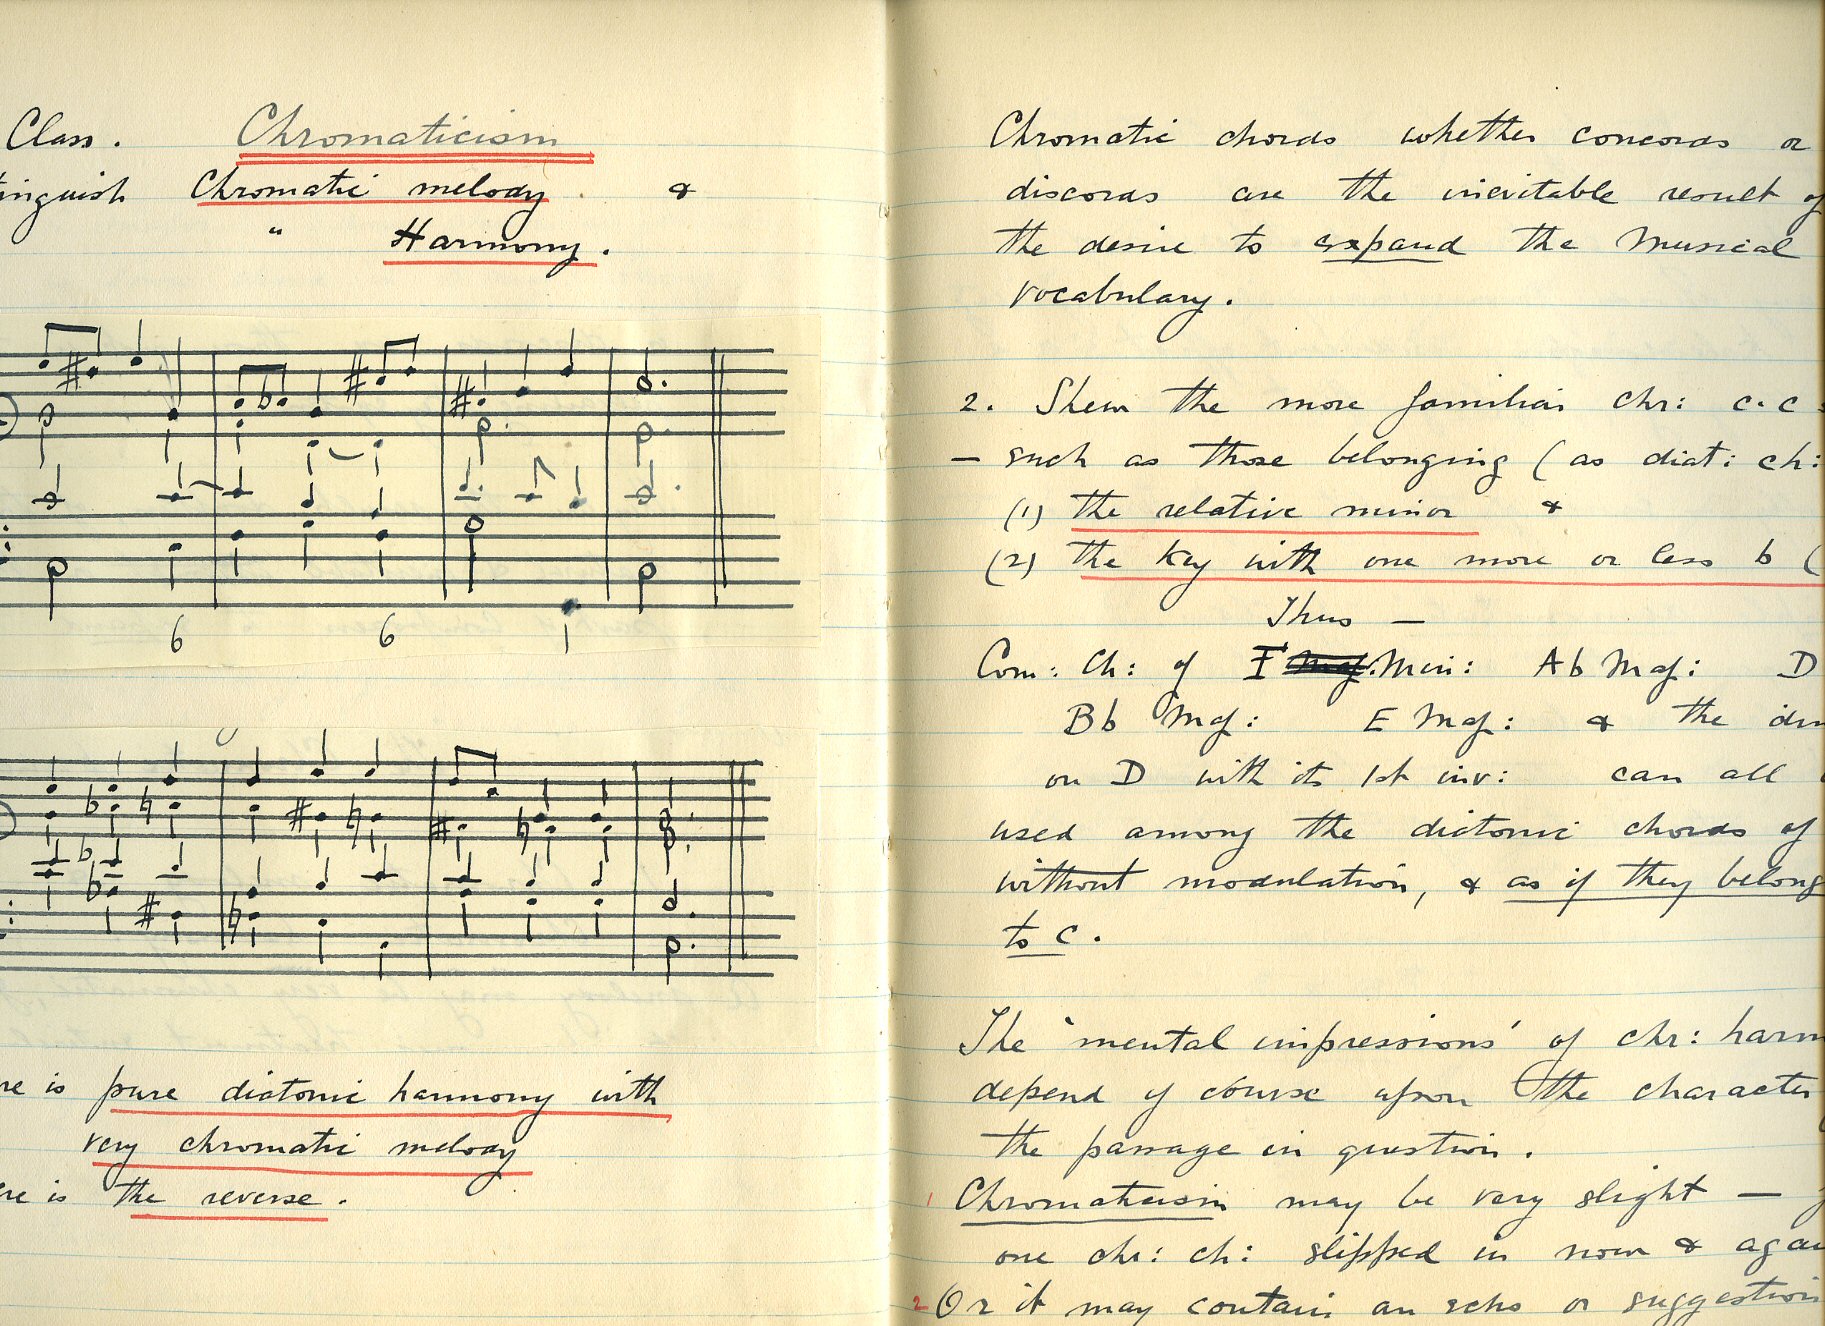 Class. Chromaticism
inguish Chromatic melody &
" Harmony.
6 6 1
re is pure diatonic harmony with
very chromatic melody
re is the reverse.
Chromatic chords whether concords or
discords are the inevitable result of
the desire to expand the musical
vocabulary.
2. Shew the more familiar chr: c.c
— such as those belonging (as diat: ch:
(1) the relative minor &
(2) the key with one more or less b (
Thus —
Com: Ch: of F Min: Ab Maj: D
Bb Maj: E Maj: & the
on D with its 1st inv: can all
used among the diatonic chords of
without modulation, & as if they belong
to C.
The 'mental impressions' of chr: harm
depend of course upon the character
the passage in question.
1 Chromaticism may be very slight —
one chr: ch: slipped in now & agai
2 Or it may contain an echo or suggestion